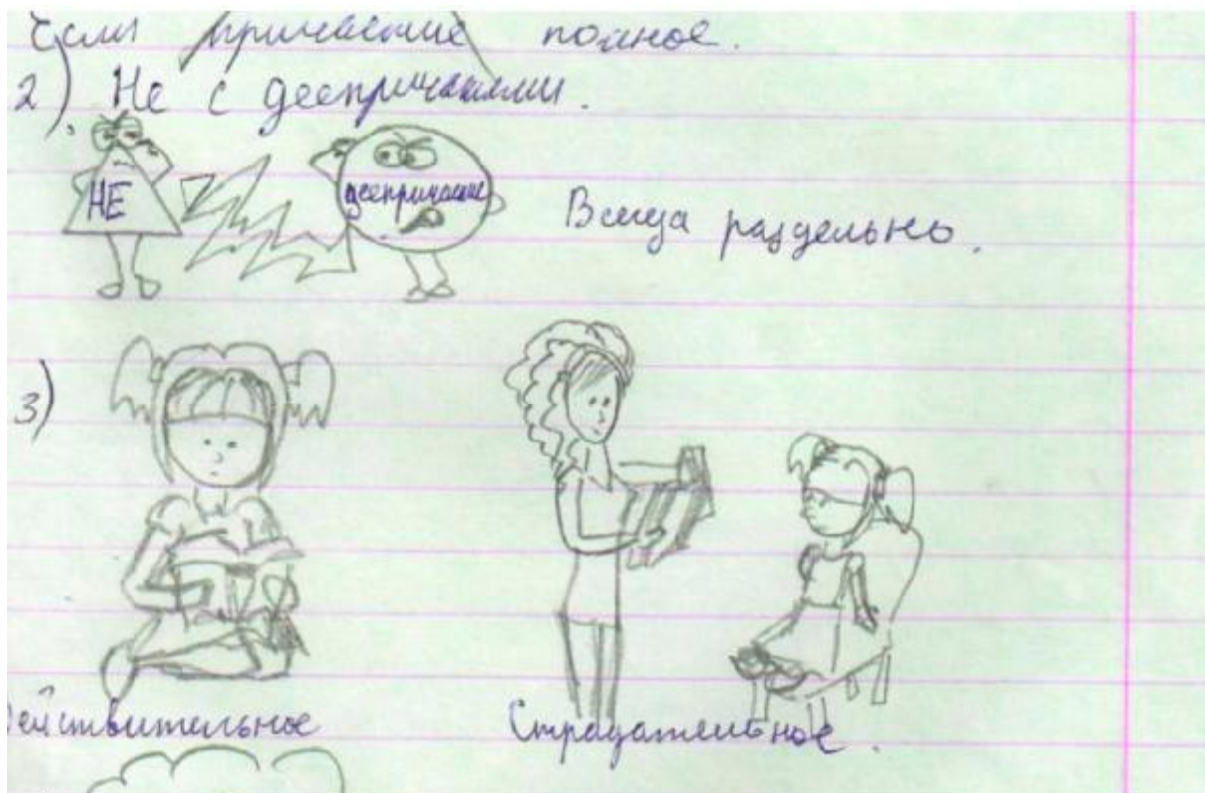 Если причастие полное.
2). Не с деепричастиями.
НЕ
деепричастие
Всегда раздельно.
3)
ействительное
Страдательное.